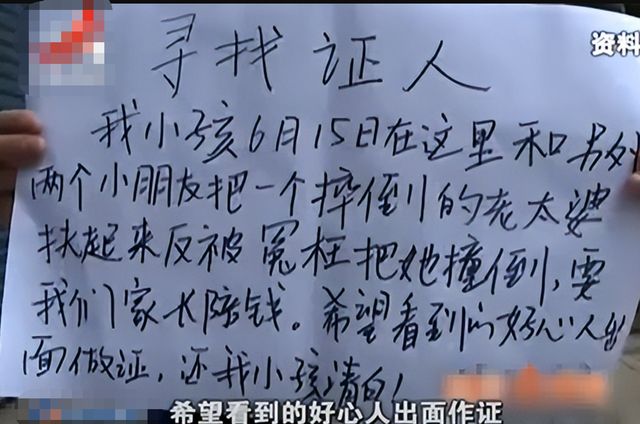 资料
寻找证人
我小孩6月15日在这里和另外
两个小朋友把一个摔倒的老太婆
扶起来反被冤枉把她撞倒,要
我们家长陪钱。希望看到的好心人出
面做证,还我小孩清白!
希望看到的好心人出面作证